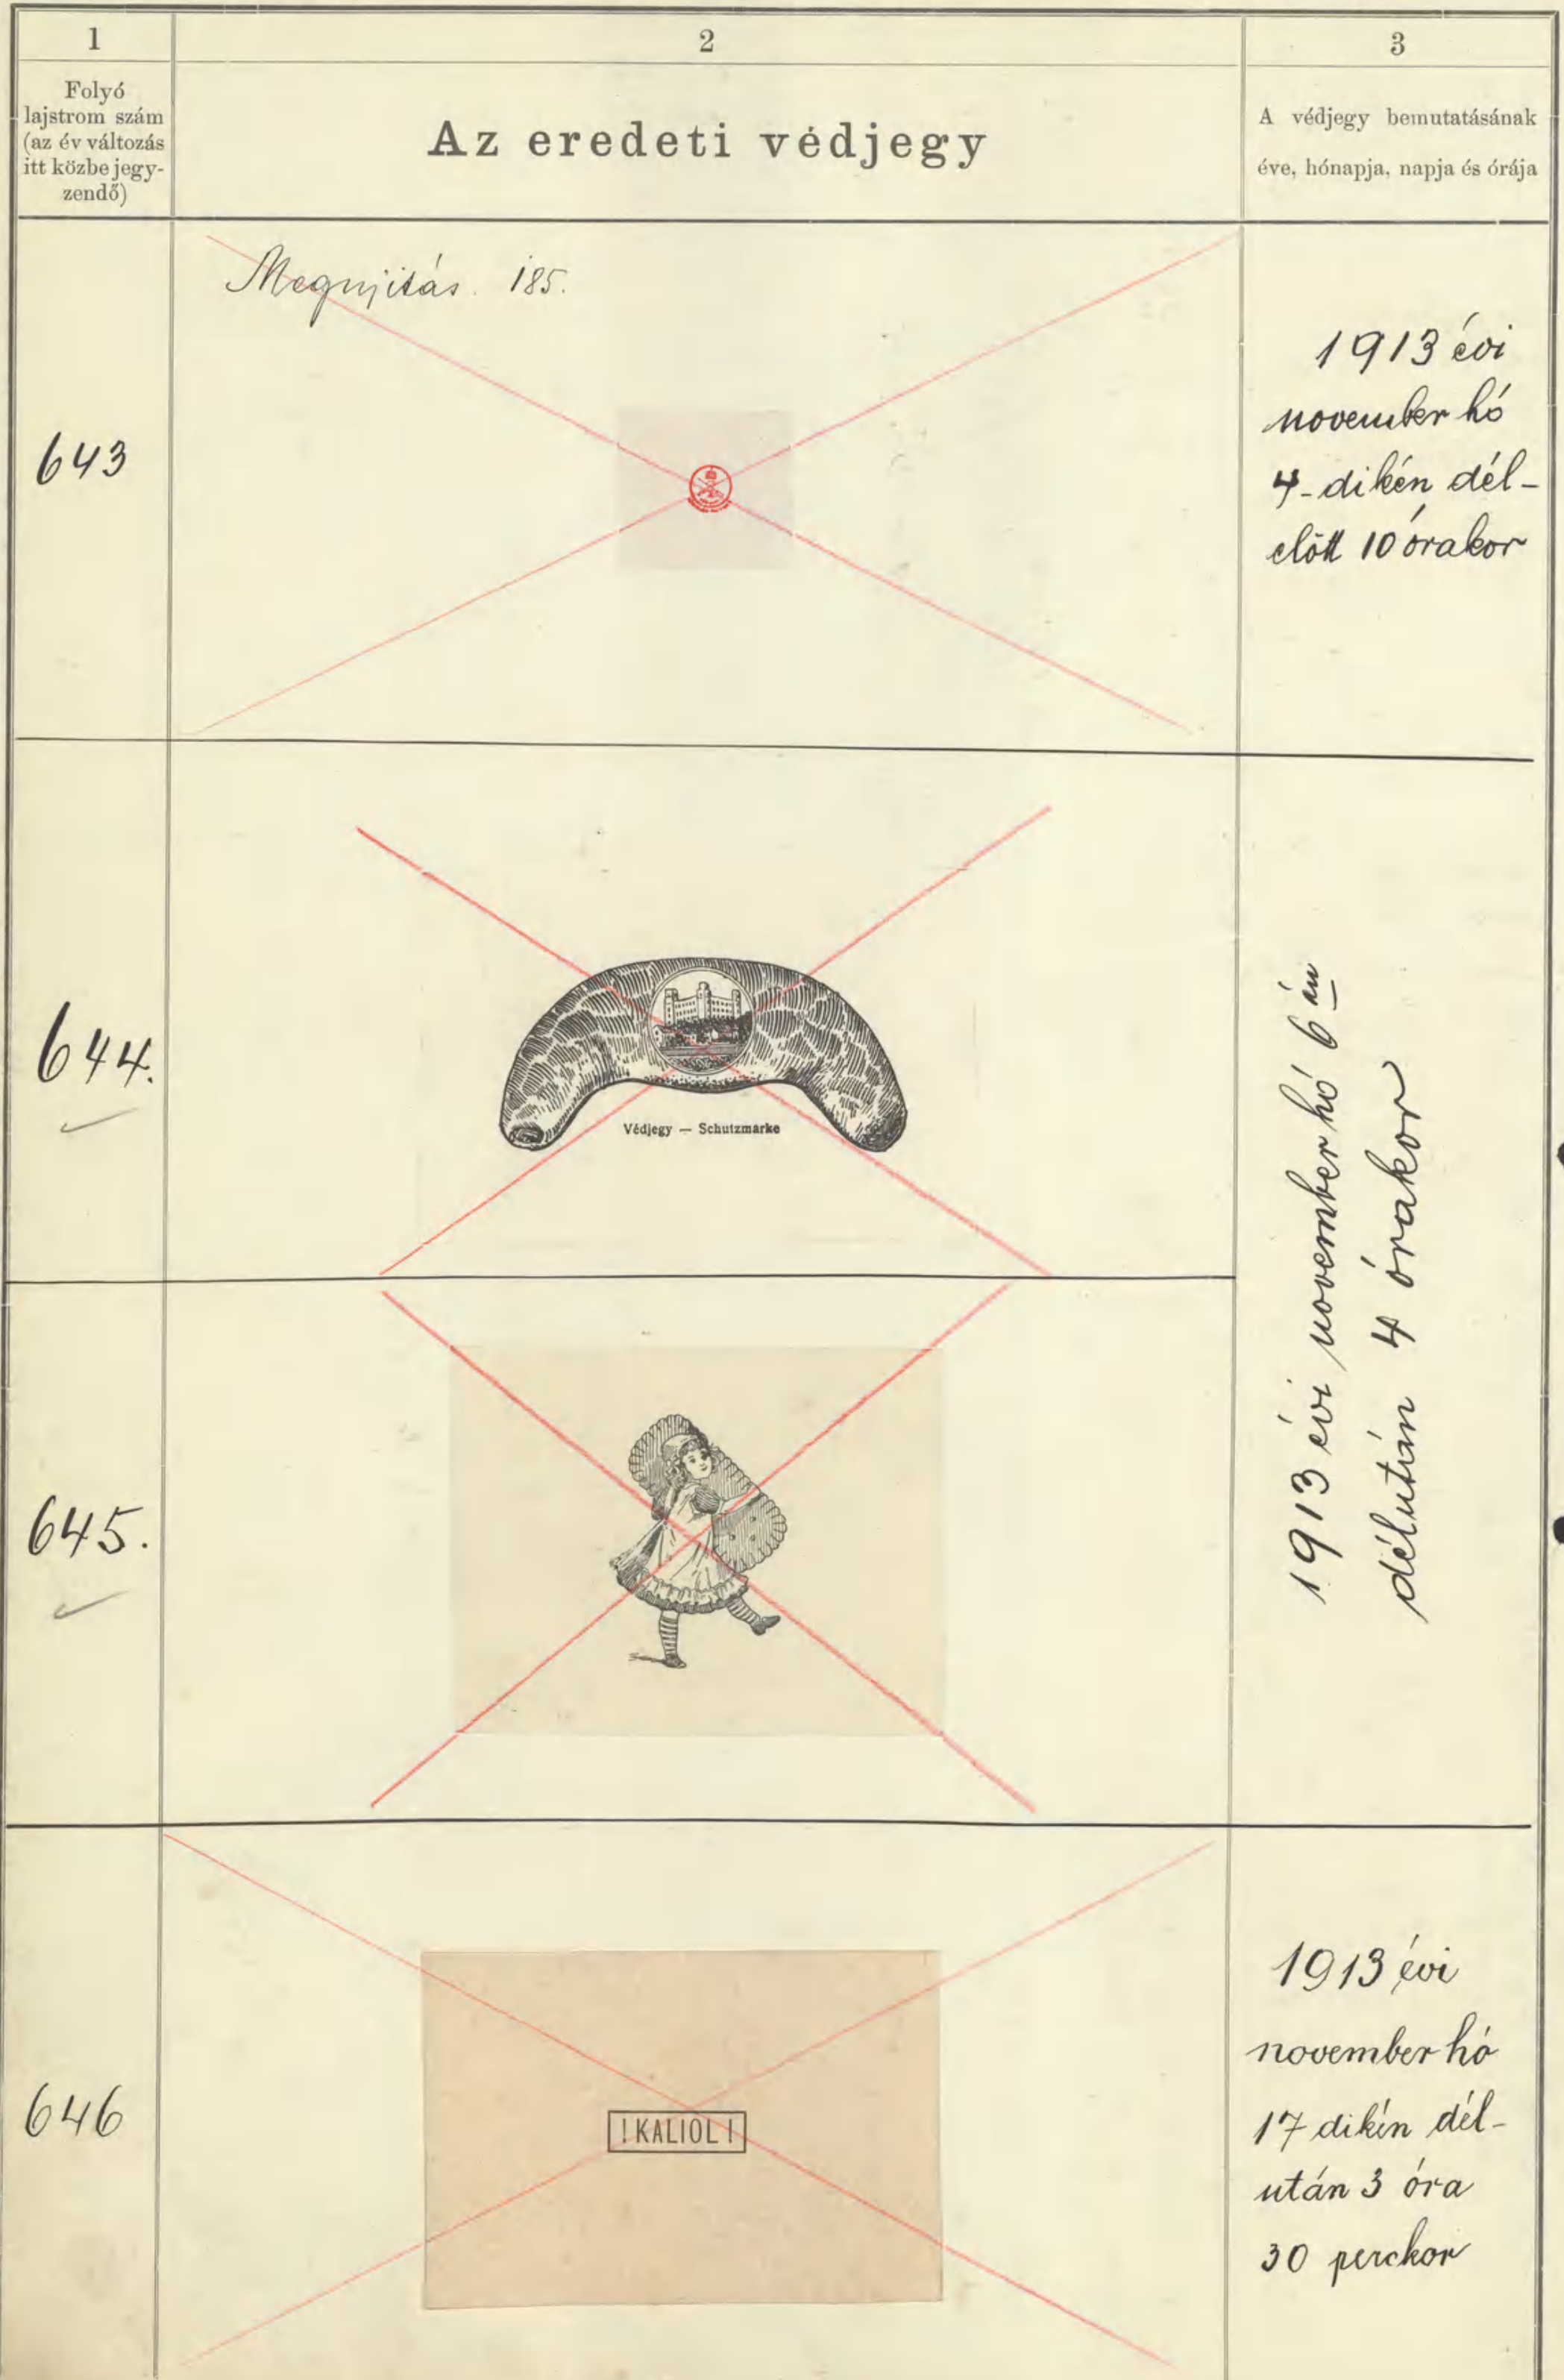 1
2
3
Folyó
lajstrom szám
(az év változás
itt közbe jegy-
zendő)
Az eredeti védjegy
A védjegy bemutatásának
éve, hónapja, napja és órája
643
Megujitás. 185.
1913 évi
november hó
4-dikén dél-
előtt 10 órakor
644.
Védjegy — Schutzmarke
1913 évi november hó 6 án
délután 4 órakor
645.
646
! KALIOL !
1913 évi
november hó
17 dikén dél-
után 3 óra
30 perckor